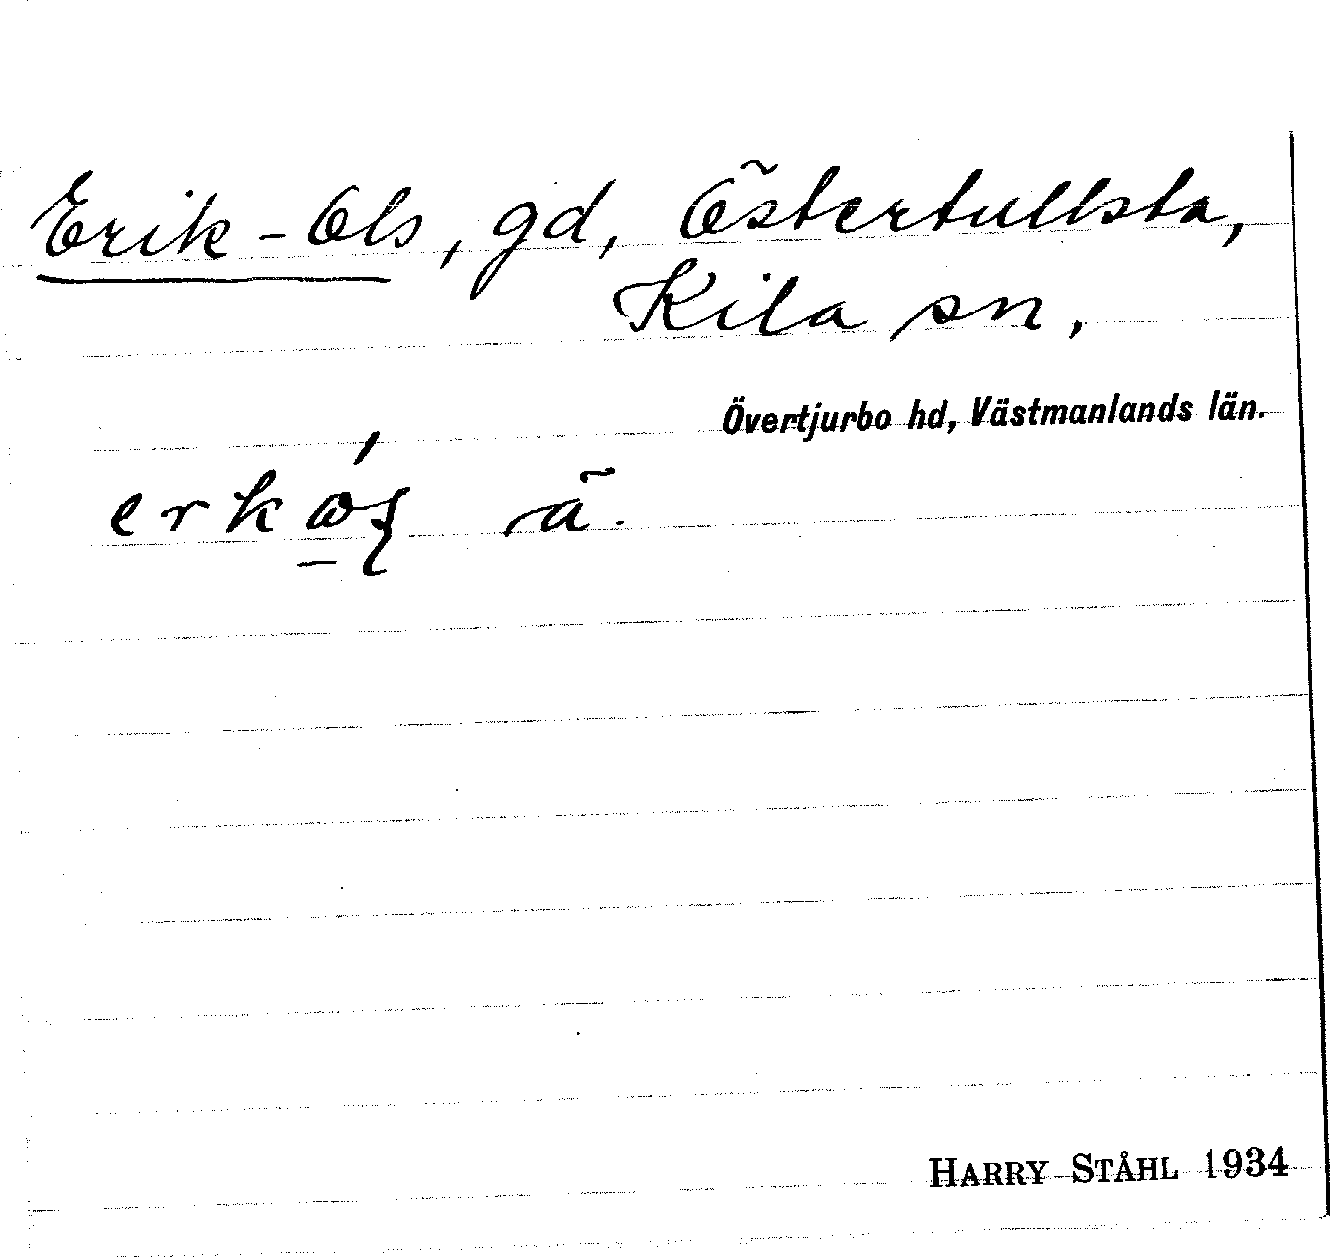 Erik-Ols, gd, Östertullsta,
Kila sn,
Övertjurbo hd, Västmanlands län.
ä.
HARRY STÅHL 1934